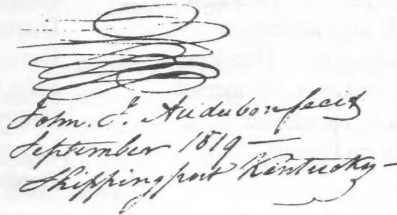 John. J. Audubon facit
September 1819 —
Shippingport Kentucky —